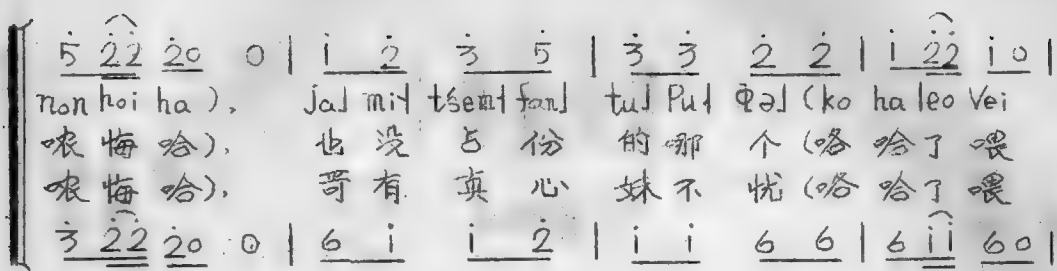 5̇ 2̇2̇ 2̇0 0 | 1̇ 2̇ 3̇ 5̇ | 3̇ 3̇ 2̇ 2̇ | 1̇ 2̇2̇ 1̇0 |
non hoi ha), ja˩ mi˧ tsʻem˧ fan˩ tu˩ Pu˧ ȵə˩ (ko ha leo Vei
哝 悔 哈), 也 没 占 份 的 哪 个 (咯 哈 了 喂
哝 悔 哈), 哥 有 真 心 妹 不 忧 (咯 哈 了 喂
3̇ 2̇2̇ 2̇0 0 | 6 1̇ 1̇ 2̇ | 1̇ 1̇ 6 6 | 6 1̇1̇ 60 |